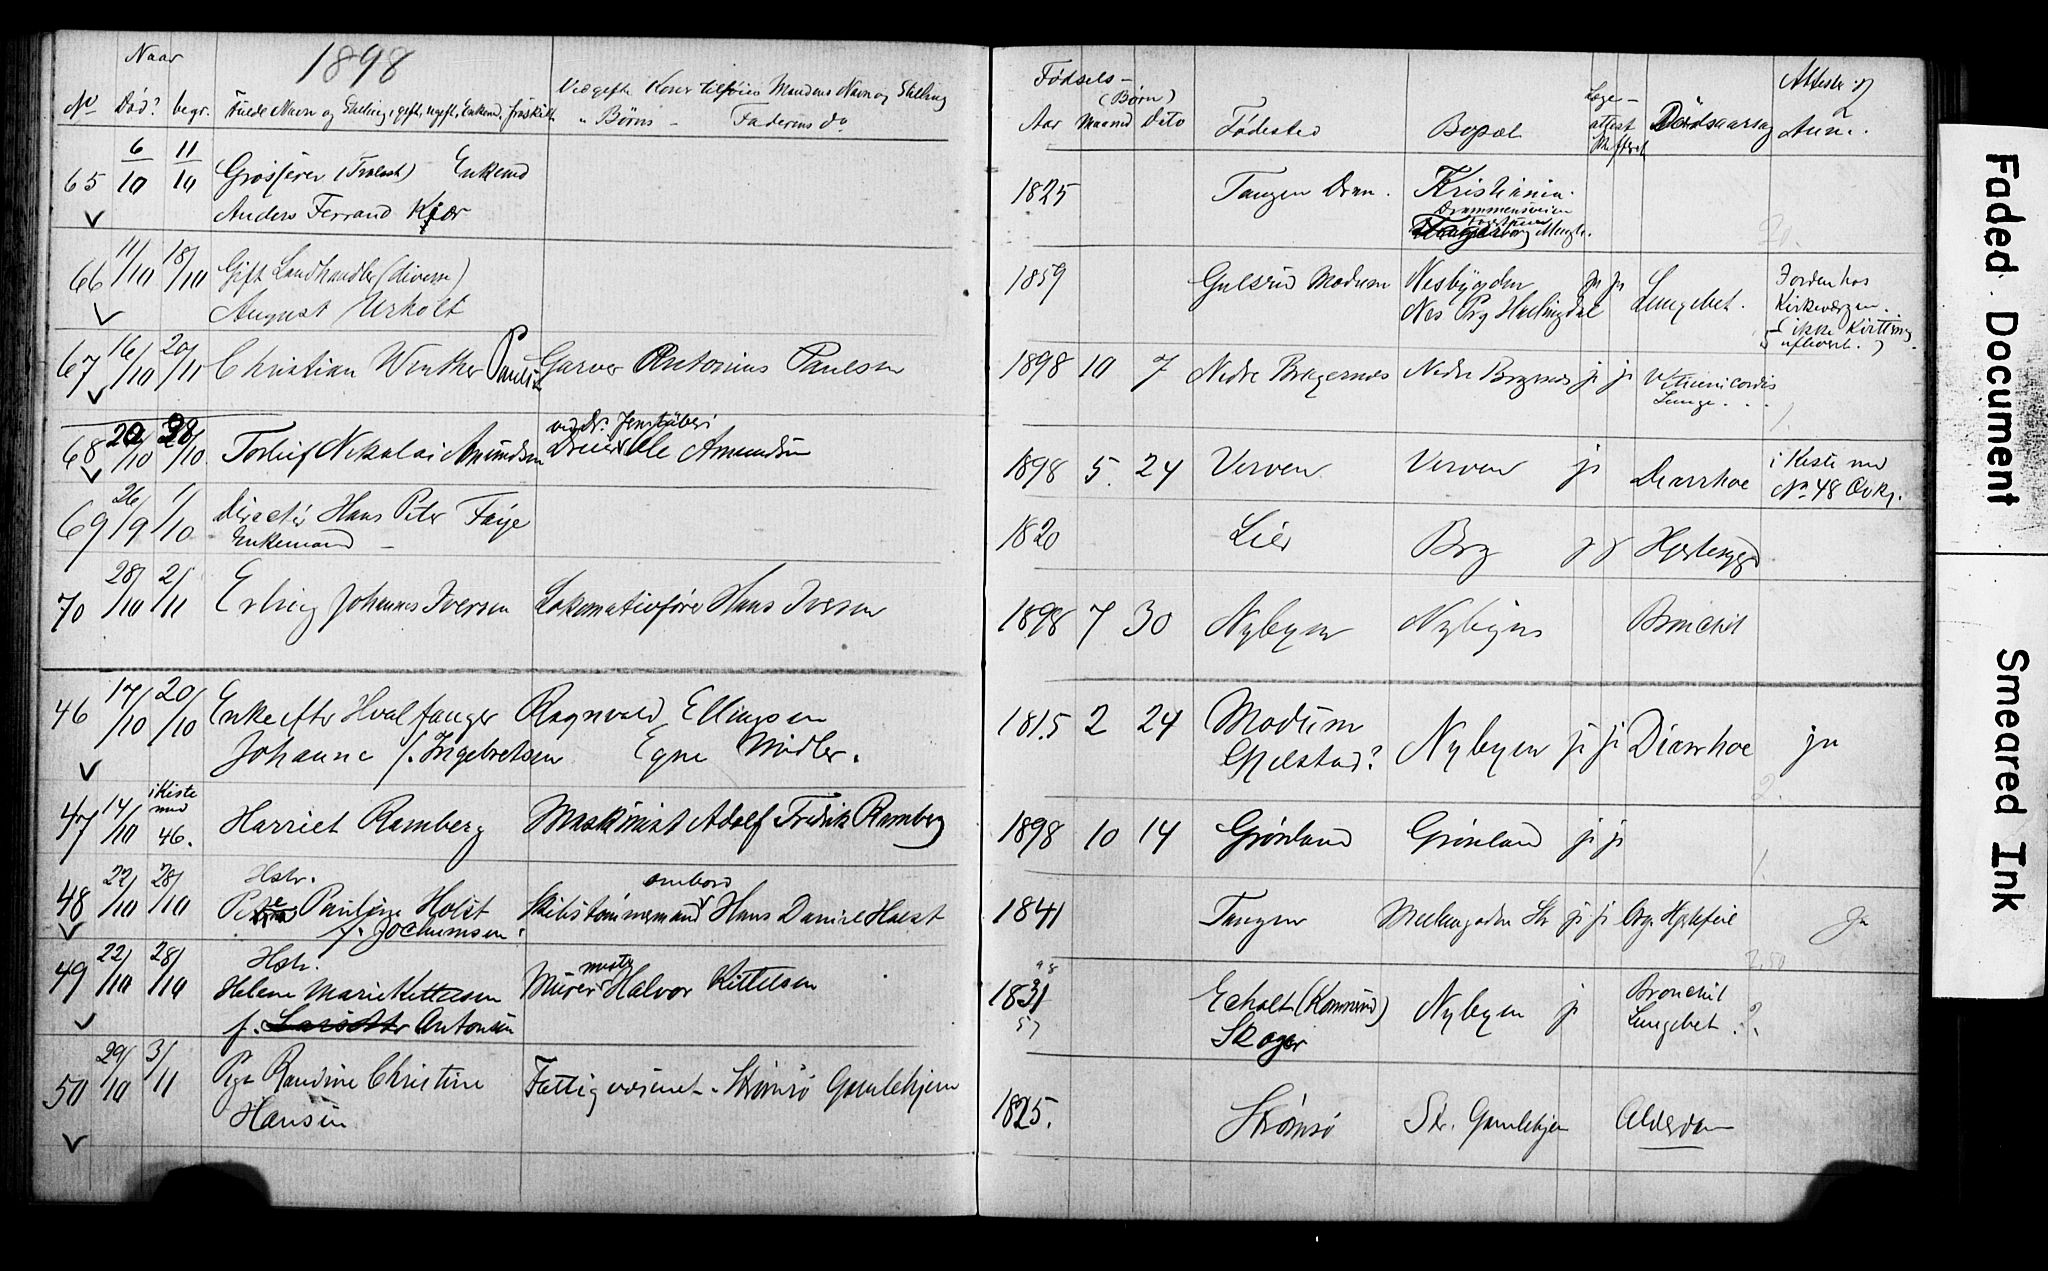 Naar
1898
No Død? begr. Fulde Navn og Stilling, gift, ugift, Enkem.
Ved gifte Koner tilføies Mandens Navn og Stilling
" Børns - Faderens do
Fødsels-
(Børn)
Aar Maaned Dato Fødested Bopæl Læge-attest Dødsaarsag Anm.
65 6/10 11/10 Grosserer (Trælast) Enkemd 1825 Tangen Dram. Kristiania.
Anders Ferrand Kiær Drammensveien
66 11/10 18/10 Gift Landhandler (diverse) 1859 Gulsrud Modum Nesbygden ja ja Lungebet. Jorden hos
August Urholt Nes Prg Hallingdal Kirkeværgen.
ikke
67 16/10 20/11 Christian Winther Paulsen Garver Antonius Paulsen 1898 10 7 Nedre Bragernes Nedre Bragernes ja ja
Lunge.
68 20/10 28/10 Torleif Nikolai Amundsen Dreier Ole Amundsen 1898 5. 24 Verven Verven ja Diarrhoe i Kiste med
No 48
69 26/9 1/10 Director Hans Peter Faye 1820 Lier Brg Hjertesyge
Enkemand -
70 28/10 2/11 Erling Johannes Iversen Lokomotivfører Hans Iversen 1898 7 30 Nybyen Nybyen Bronchit
46 17/10 20/10 Enke efter Hvalfanger Ragnvald Ellingsen 1815 2 24 Modum Nybyen ja ja Diarrhoe ja
Johanne f. Ingebretsen Egne Midler. Gjelstad?
47 14/10 i Kiste med 46. Harriet Ramberg Maskinist Adolf Fredrik Ramberg 1898 10 14 Grønland Grønland ja ja
48 22/10 28/10 Hstr. Pauline Holst Skibstømmermand ombord Hans Daniel Holst 1841 Tangen ja ja Org. Hjertefeil Ja
f. Jochumsen.
49 22/10 28/10 Hstr. Murermester Halvor Kittelsen 1831 Nybyen ja Bronchit
Helene Marie Kittelsen Lungebet. ?
f. Larsdtr Antonsen Skoger
50 29/10 3/11 Pige Randine Christine Fattigvæsenet - Strømsø Gamlehjem 1825. Strømsø Str. Gamlehjem Alderdom
Hansen
Faded Document
Smeared Ink